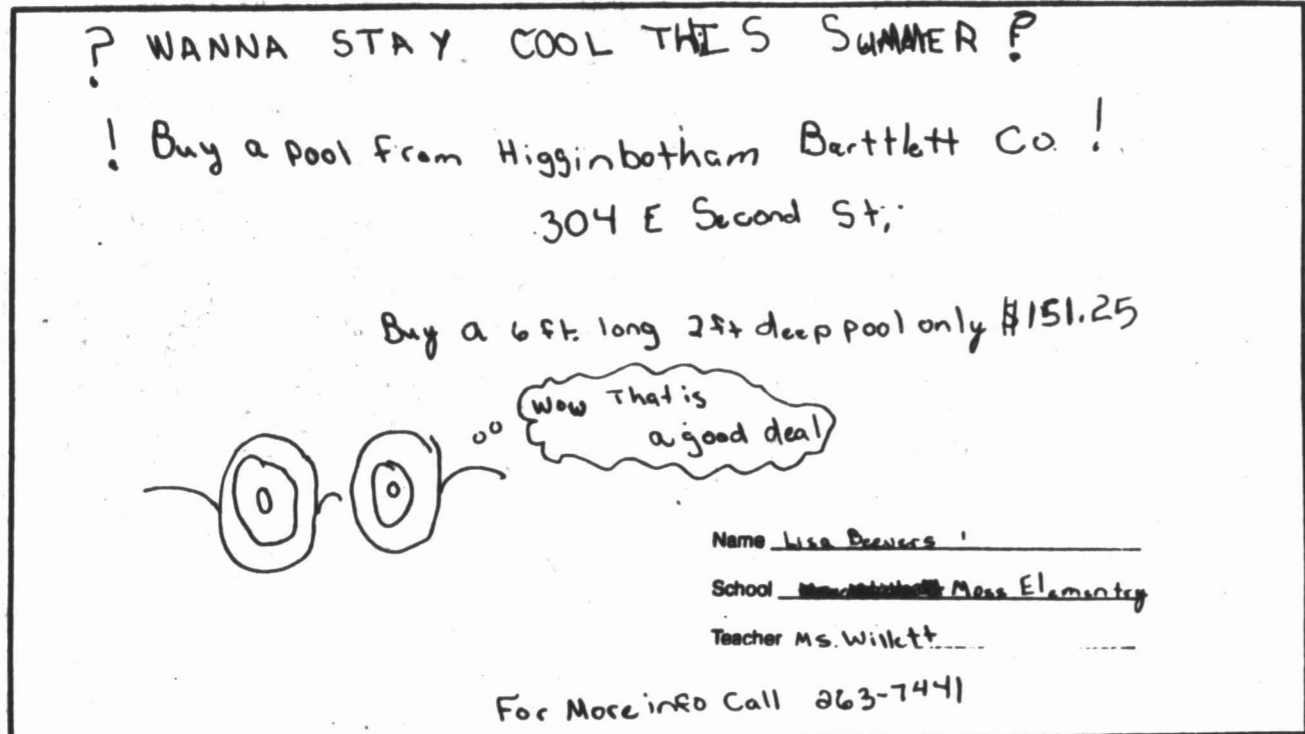 ? WANNA STAY COOL THIS SUMMER ?
! Buy a pool from Higginbotham Barttlett Co. !
304 E Second St,
Buy a 6 ft. long 2 ft deep pool only $151.25
Wow That is
a good deal
Name Lisa Beevers
School Moss Elementry
Teacher Ms. Willett
For More info Call 263-7441